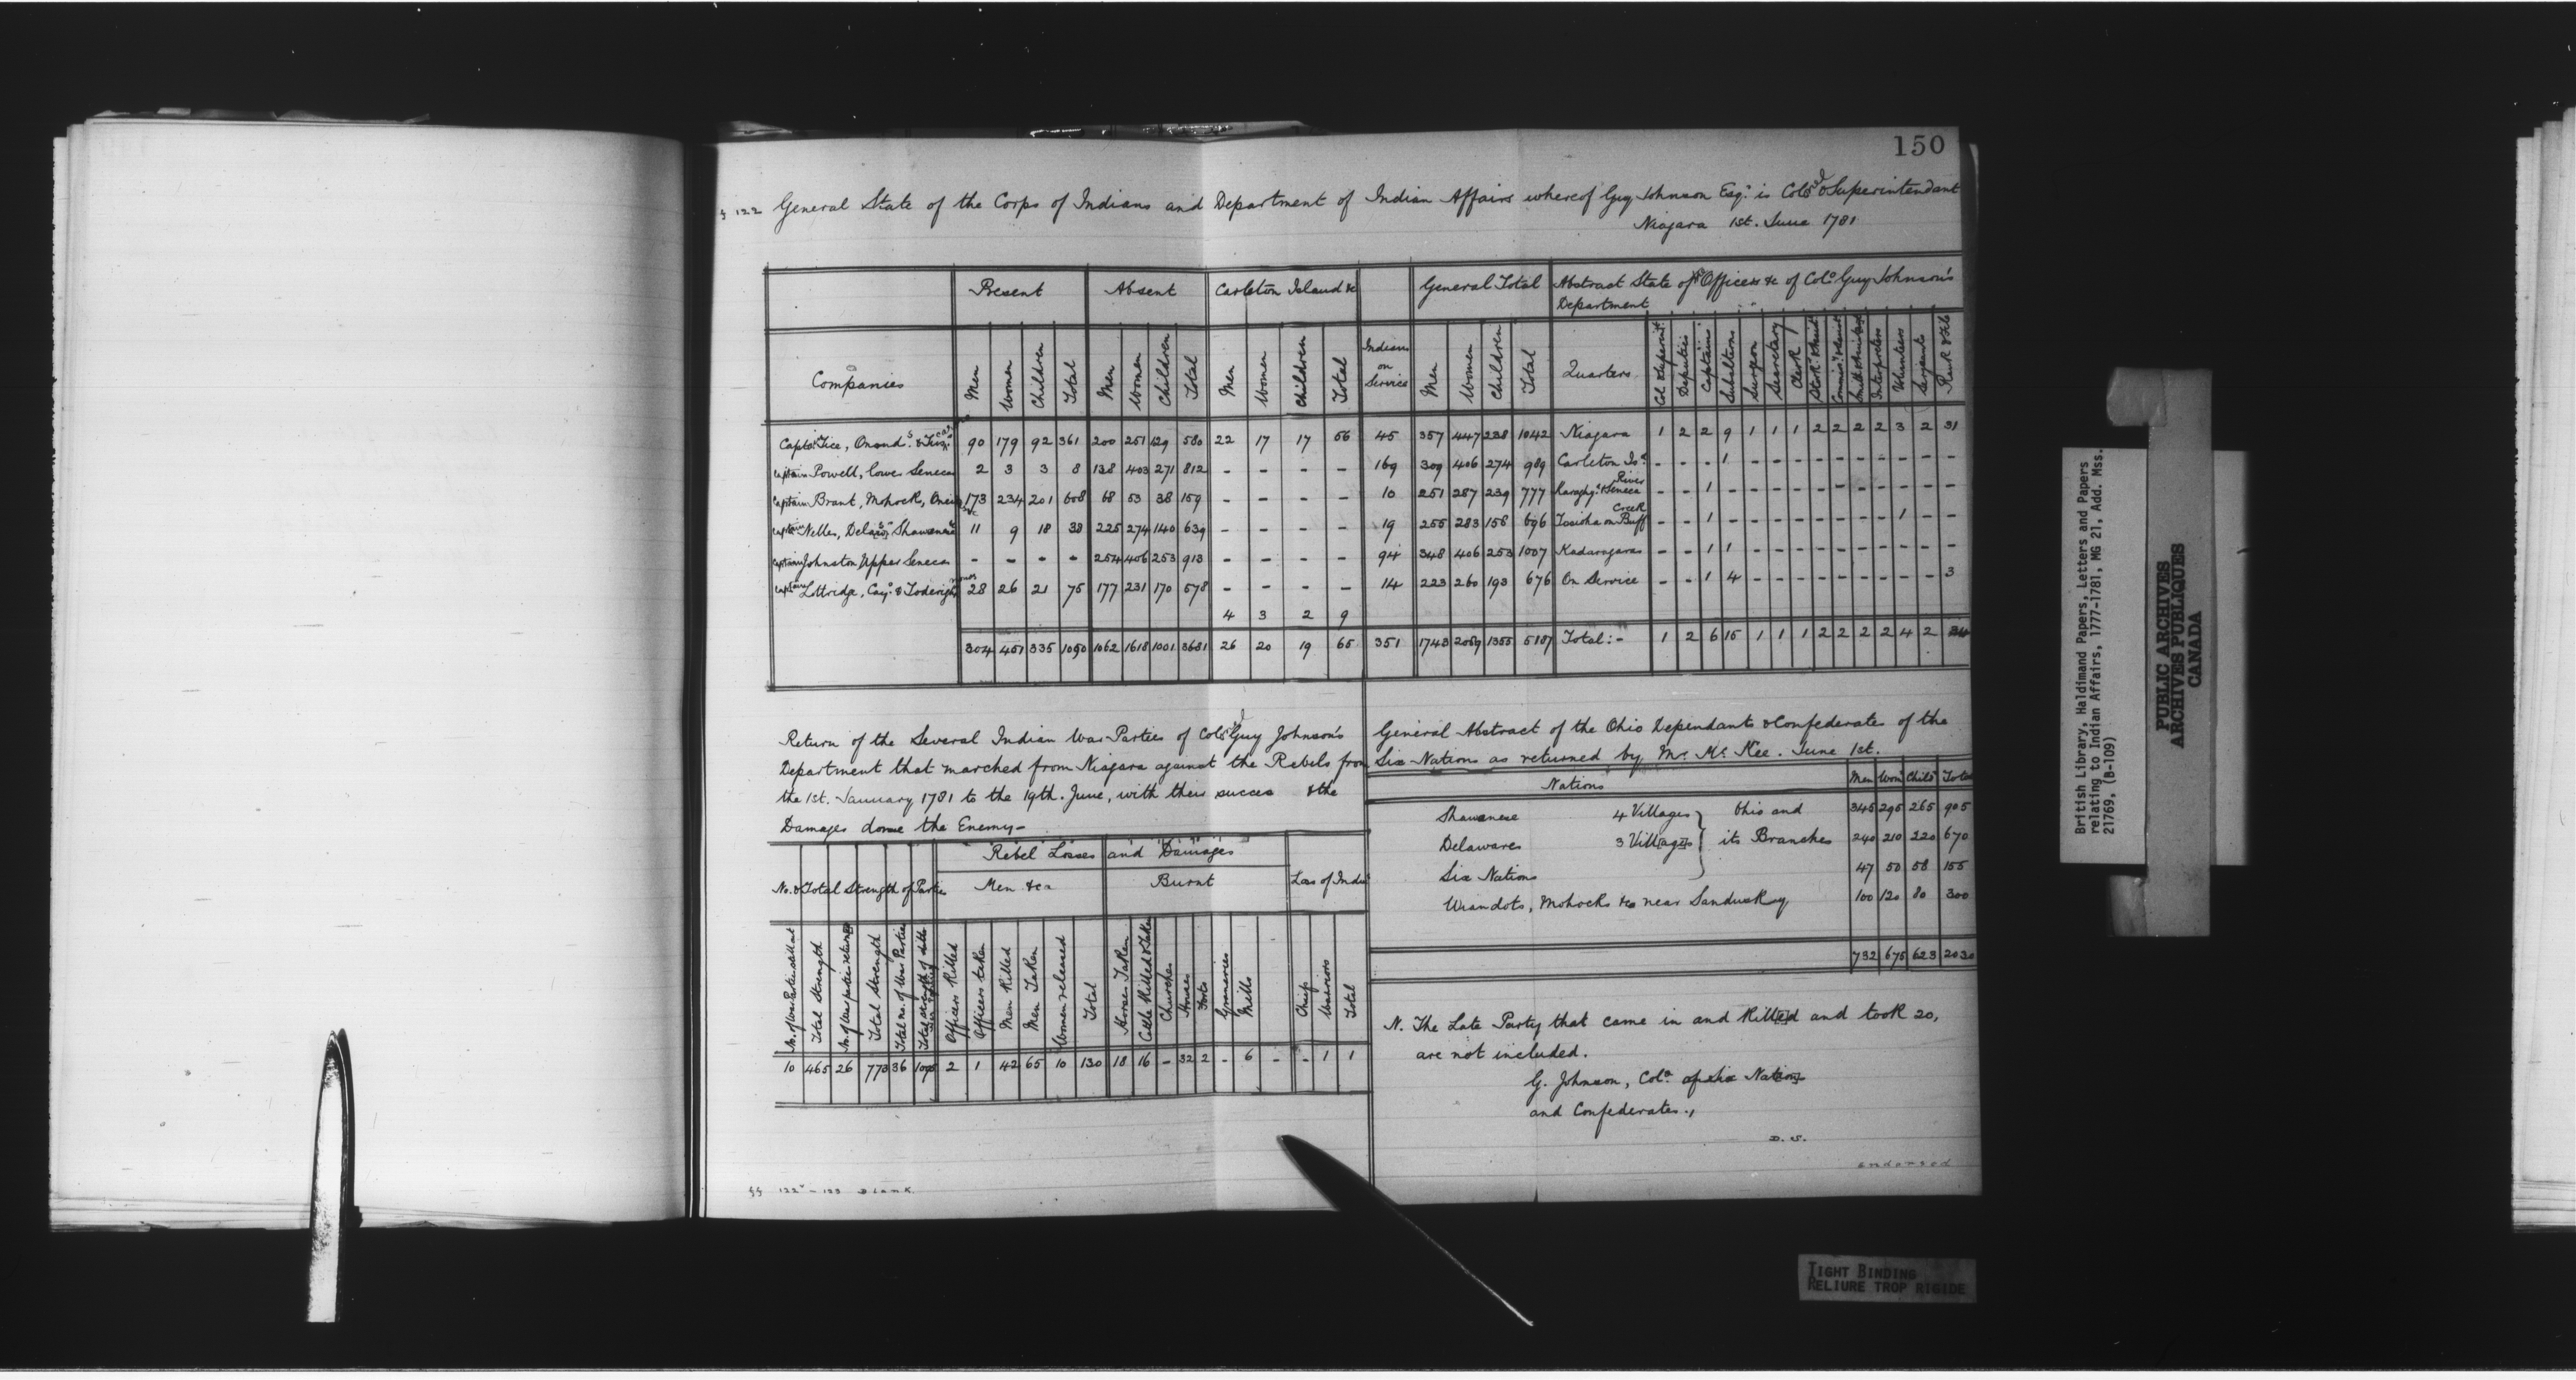 150
§ 122 General State of the Corps of Indians and Department of Indian Affairs whereof Guy Johnson Esqr. is Colo. & Superintendant
Niagara 1st. June 1781
Present Absent Carleton Island &c General Total Abstract State of Officers &c of Colo. Guy Johnson's Department
Companies Men Women Children Total Men Women Children Total Men Women Children Total Indians on Service Men Women Children Total Quarters Col. & Superint. Deputies Captains Subalterns Surgeon Secretary Clerk Interpreters Volunteers Sergeants Rank & File
Capts. Tice, Onond.s 90 179 92 361 200 251 129 580 22 17 17 56 45 357 447 238 1042 Niagara 1 2 2 9 1 1 1 2 2 2 2 3 2 31
Captain Powell, lower Senecas 2 3 3 8 138 403 271 812 - - - - 169 309 406 274 989 Carleton Isd. - - - 1 - - - - - - - - - -
Captain Brant, Mohock, Oneida &c 173 234 201 608 68 53 38 159 - - - - 10 251 287 239 777 & Seneca River - - 1 - - - - - - - - - - -
Captain Nelles, Delaws. Shawanese 11 9 18 38 225 274 140 639 - - - - 19 255 283 158 696 Tosioha on Buff Creek - - 1 - - - - - - - - 1 - -
Captain Johnston Upper Senecas - - - - 254 406 253 913 - - - - 94 348 406 253 1007 Kadaragaras - - 1 1 - - - - - - - - - -
Captain Lottridge, Cay.s & 28 26 21 75 177 231 170 578 - - - - 14 223 260 193 676 On Service - - 1 4 - - - - - - - - - 3
4 3 2 9
304 451 335 1090 1062 1618 1001 3681 26 20 19 65 351 1743 2089 1355 5187 Total:- 1 2 6 15 1 1 1 2 2 2 2 4 2 34
Return of the Several Indian War Parties of Colo. Guy Johnson's
Department that marched from Niagara against the Rebels from
the 1st. January 1781 to the 19th. June, with their succes & the
Damages done the Enemy-
Rebel Losses and Damages
No. & Total Strength of Parties Men &ca Burnt Loss of Inds
No. of War Parties still out Total Strength No. of War parties returned Total Strength Total no. of War Parties Total strength of ditto Officers Killed Officers taken Men Killed Men Taken Women released Total Horses Taken Cattle Killed & Taken Churches Houses Forts Graneries Mills Chiefs Warriors Total
10 465 26 773 36 2 1 42 65 10 130 18 16 - 32 2 - 6 - - 1 1
General Abstract of the Ohio Dependants & Confederates of the
Six Nations as returned by Mr. Mc. Kee. June 1st.
Nations Men Wom Childn Total
Shawanese 4 Villages Ohio and 345 295 265 905
Delawares 3 Villages its Branches 240 210 220 670
Six Nations 47 50 58 155
Wiandots, Mohocks &c near Sandusky 100 120 80 300
732 675 623 2030
N. The Late Party that came in and Killed and took 20,
are not included.
G. Johnson, Colo. of six Nations
and Confederates.,
D. S.
endorsed
§§ 122v - 123 Blank.
British Library, Haldimand Papers, Letters and Papers
relating to Indian Affairs, 1777-1781, MG 21, Add. Mss.
21769, (B-109)
PUBLIC ARCHIVES
ARCHIVES PUBLIQUES
CANADA
TIGHT BINDING
RELIURE TROP RIGIDE